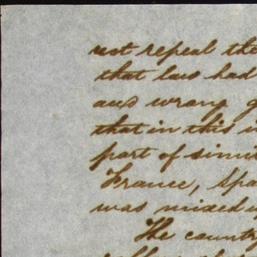 not repeal the
that law had
and wrong g
that in this
part of simi
France, Spa
was mixed
The country